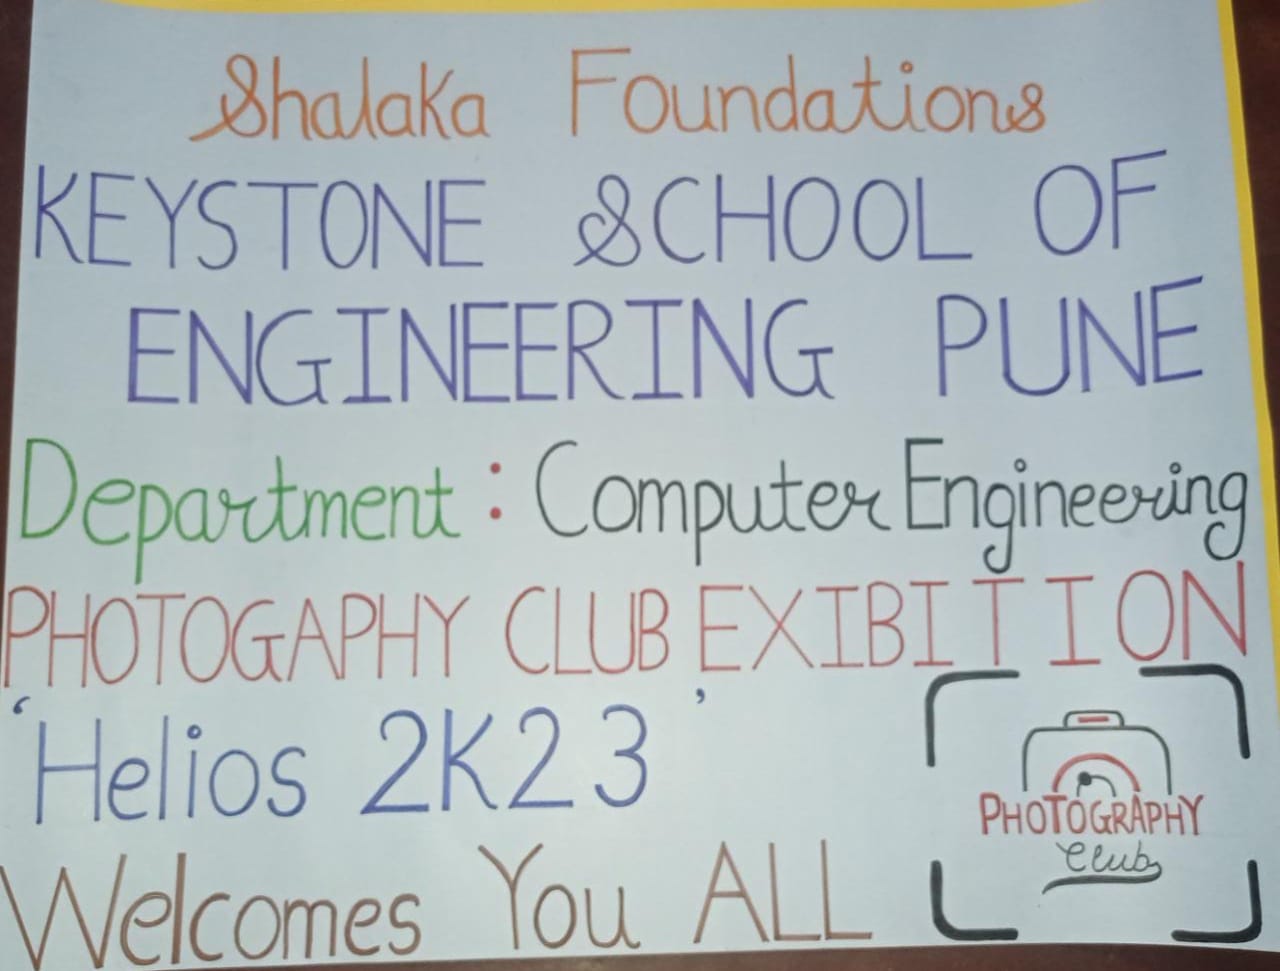 Shalaka Foundations
KEYSTONE SCHOOL OF
ENGINEERING PUNE
Department : Computer Engineering
PHOTOGAPHY CLUB EXIBITION
'Helios 2K23'
Welcomes You ALL
PHOTOGRAPHY
Club